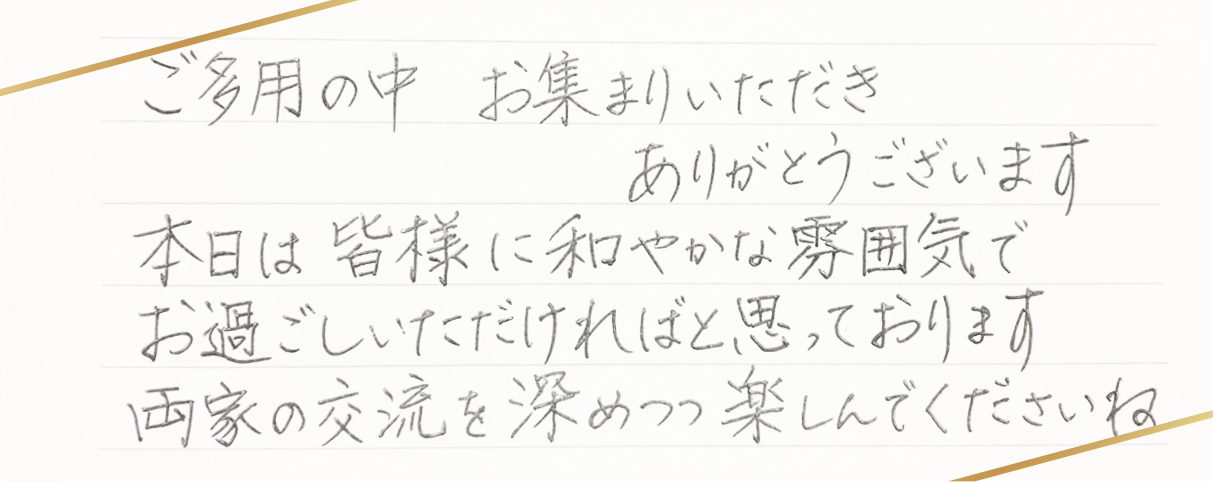 ご多用の中　お集まりいただき
ありがとうございます
本日は 皆様に和やかな雰囲気で
お過ごしいただければと思っております
両家の交流を深めつつ楽しんでくださいね